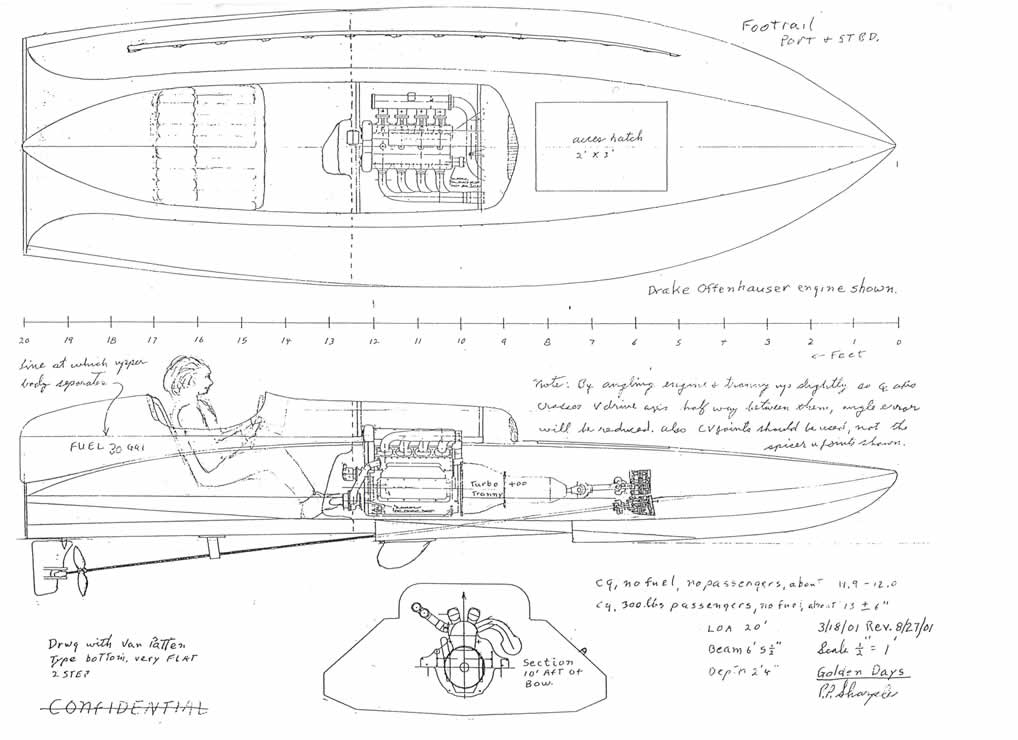 Footrail
Port & STBD.
access hatch
2' x 3'
Drake Offenhauser engine shown.
20 19 18 17 16 15 14 13 12 11 10 9 8 7 6 5 4 3 2 1 0
<- Feet
Line at which upper
body separates
Note: By angling engine & tranny up slightly so axis
crosses V drive axis half way between them, angle error
will be reduced. Also CV joints should be used, not the
spicer u joints shown.
FUEL 30 Gal
Turbo 400
Tranny
cg, no fuel, no passengers, about 11.9 - 12.0
cg, 300 lbs passengers, no fuel, about 13 ± 6"
LOA 20'
3/18/01 Rev. 8/27/01
Beam 6' 5½"
Scale ½" = 1'
Depth 2' 4"
Golden Days
Drwg with Van Patten
Type bottom, very FLAT
2 STEP
Section
10' Aft of
Bow.
CONFIDENTIAL